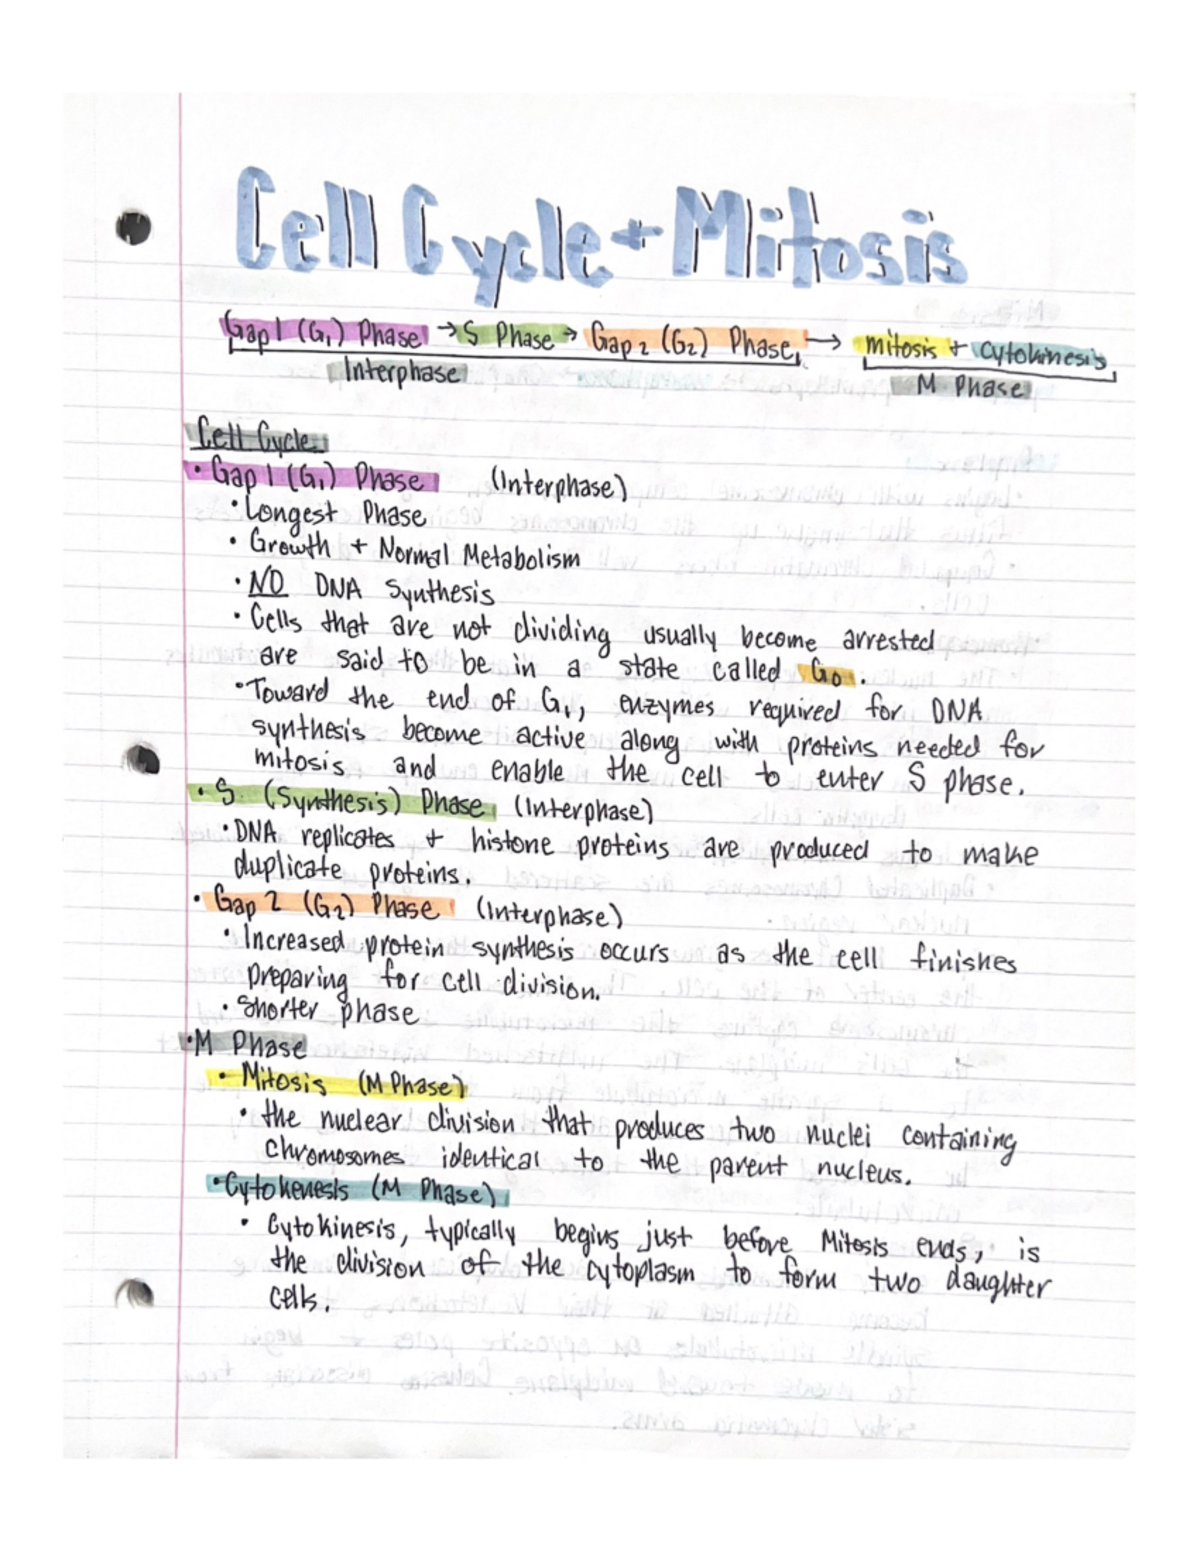 Cell Cycle + Mitosis
Gap 1 (G₁) Phase → S Phase → Gap 2 (G₂) Phase → mitosis + cytokinesis
Interphase M Phase
Cell Cycle
• Gap 1 (G₁) Phase (Interphase)
• Longest Phase
• Growth + Normal Metabolism
• NO DNA Synthesis
• Cells that are not dividing usually become arrested
are said to be in a state called G₀.
• Toward the end of G₁, enzymes required for DNA
synthesis become active along with proteins needed for
mitosis and enable the cell to enter S phase.
• S (Synthesis) Phase (Interphase)
• DNA replicates + histone proteins are produced to make
duplicate proteins.
• Gap 2 (G₂) Phase (Interphase)
• Increased protein synthesis occurs as the cell finishes
preparing for cell division.
• Shorter phase
• M Phase
• Mitosis (M Phase)
• the nuclear division that produces two nuclei containing
chromosomes identical to the parent nucleus.
• Cytokenesis (M Phase)
• Cytokinesis, typically begins just before Mitosis ends, is
the division of the cytoplasm to form two daughter
cells.